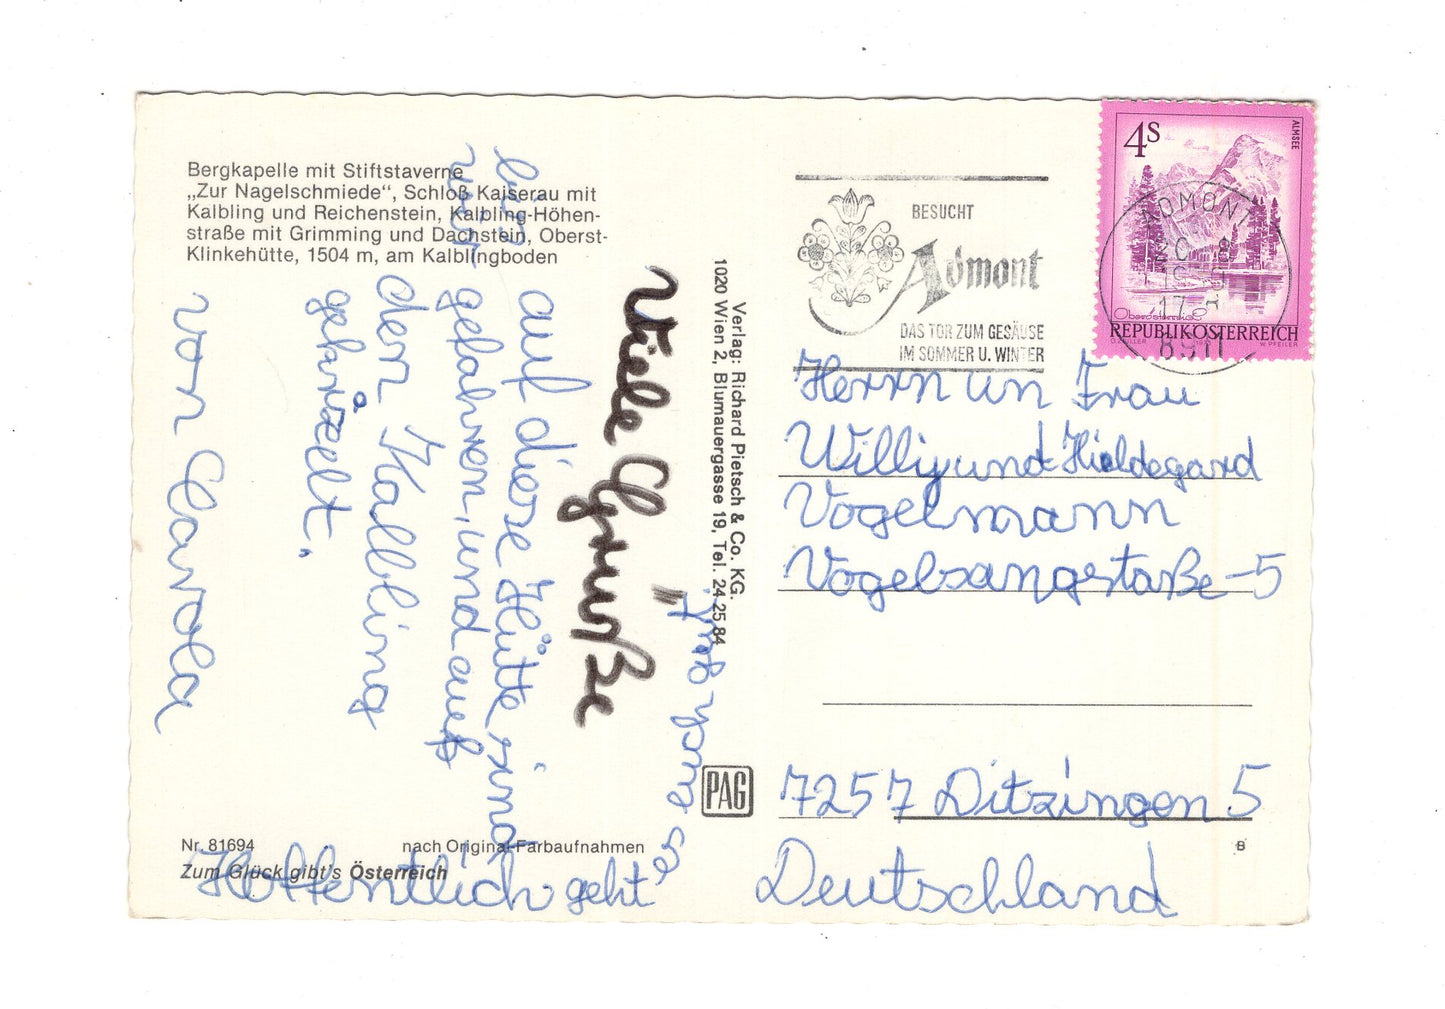 Bergkapelle mit Stiftstaverne
„Zur Nagelschmiede“, Schloß Kaiserau mit
Kalbling und Reichenstein, Kalbling-Höhen-
straße mit Grimming und Dachstein, Oberst-
Klinkehütte, 1504 m, am Kalblingboden
Viele Grüße
auf diese Hütte sind
wir
gefahren, und auf
den Kalbling
gekrazelt.
von Carola
Hoffentlich geht
es euch ganz gut.
Nr. 81694
nach Original-Farbaufnahmen
Zum Glück gibt's Österreich
Verlag: Richard Pietsch & Co. KG.
1020 Wien 2, Blumauergasse 19, Tel. 24 25 84
PAG
BESUCHT
Admont
DAS TOR ZUM GESÄUSE
IM SOMMER U. WINTER
4S
ALMSEE
Oberösterreich
REPUBLIK ÖSTERREICH
O. ZEILLER
W. PFEILER
ADMONT
8911
Herrn un Frau
Willi und Hieldegard
Vogelmann
Vogelsangstaße-5
7257 Ditzingen 5
Deutschland
B